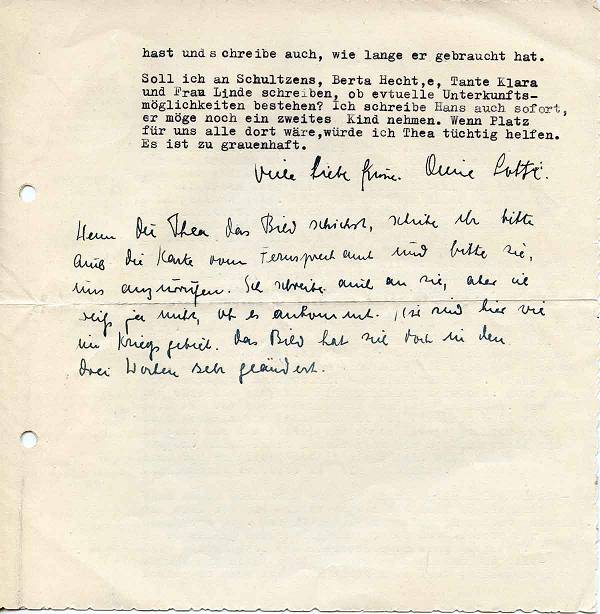 hast und s chreibe auch, wie lange er gebraucht hat.
Soll ich an Schultzens, Berta Hecht,e, Tante Klara
und Frau Linde schreiben, ob evtuelle Unterkunfts-
möglichkeiten bestehen? Ich schreibe Hans auch sofort,
er möge noch ein zweites Kind nehmen. Wenn Platz
für uns alle dort wäre,würde ich Thea tüchtig helfen.
Es ist zu grauenhaft.
Viele liebe Grüße. Deine Lotte.
Wenn Du Thea das Bild schickst, schicke ihr bitte
auch die Karte vom Fernsprechamt und bitte sie,
uns anzurufen. Ich schreibe auch an sie, aber ich
weiß ja nicht, ob es ankommt. Wir sind hier wie
im Kriegsgebiet. Das Bild hat sich doch in den
drei Wochen sehr geändert.